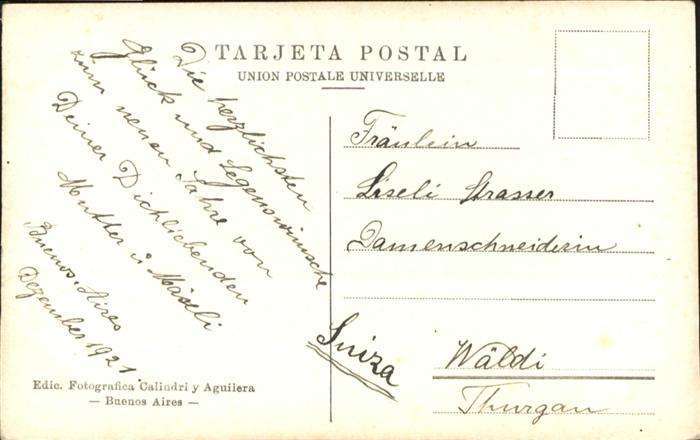 TARJETA POSTAL
UNION POSTALE UNIVERSELLE
Die herzlichsten
Glück und Segenswünsche
zum neuen Jahre von
Deiner Dichliebenden
Mutter u Maseli
Buenos-Aires
Dezember 1921.
Fräulein
Liseli Strasser
Damenschneiderin
Suiza
Wäldi
Thurgau
Edic. Fotografica Calindri y Aguilera
— Buenos Aires —